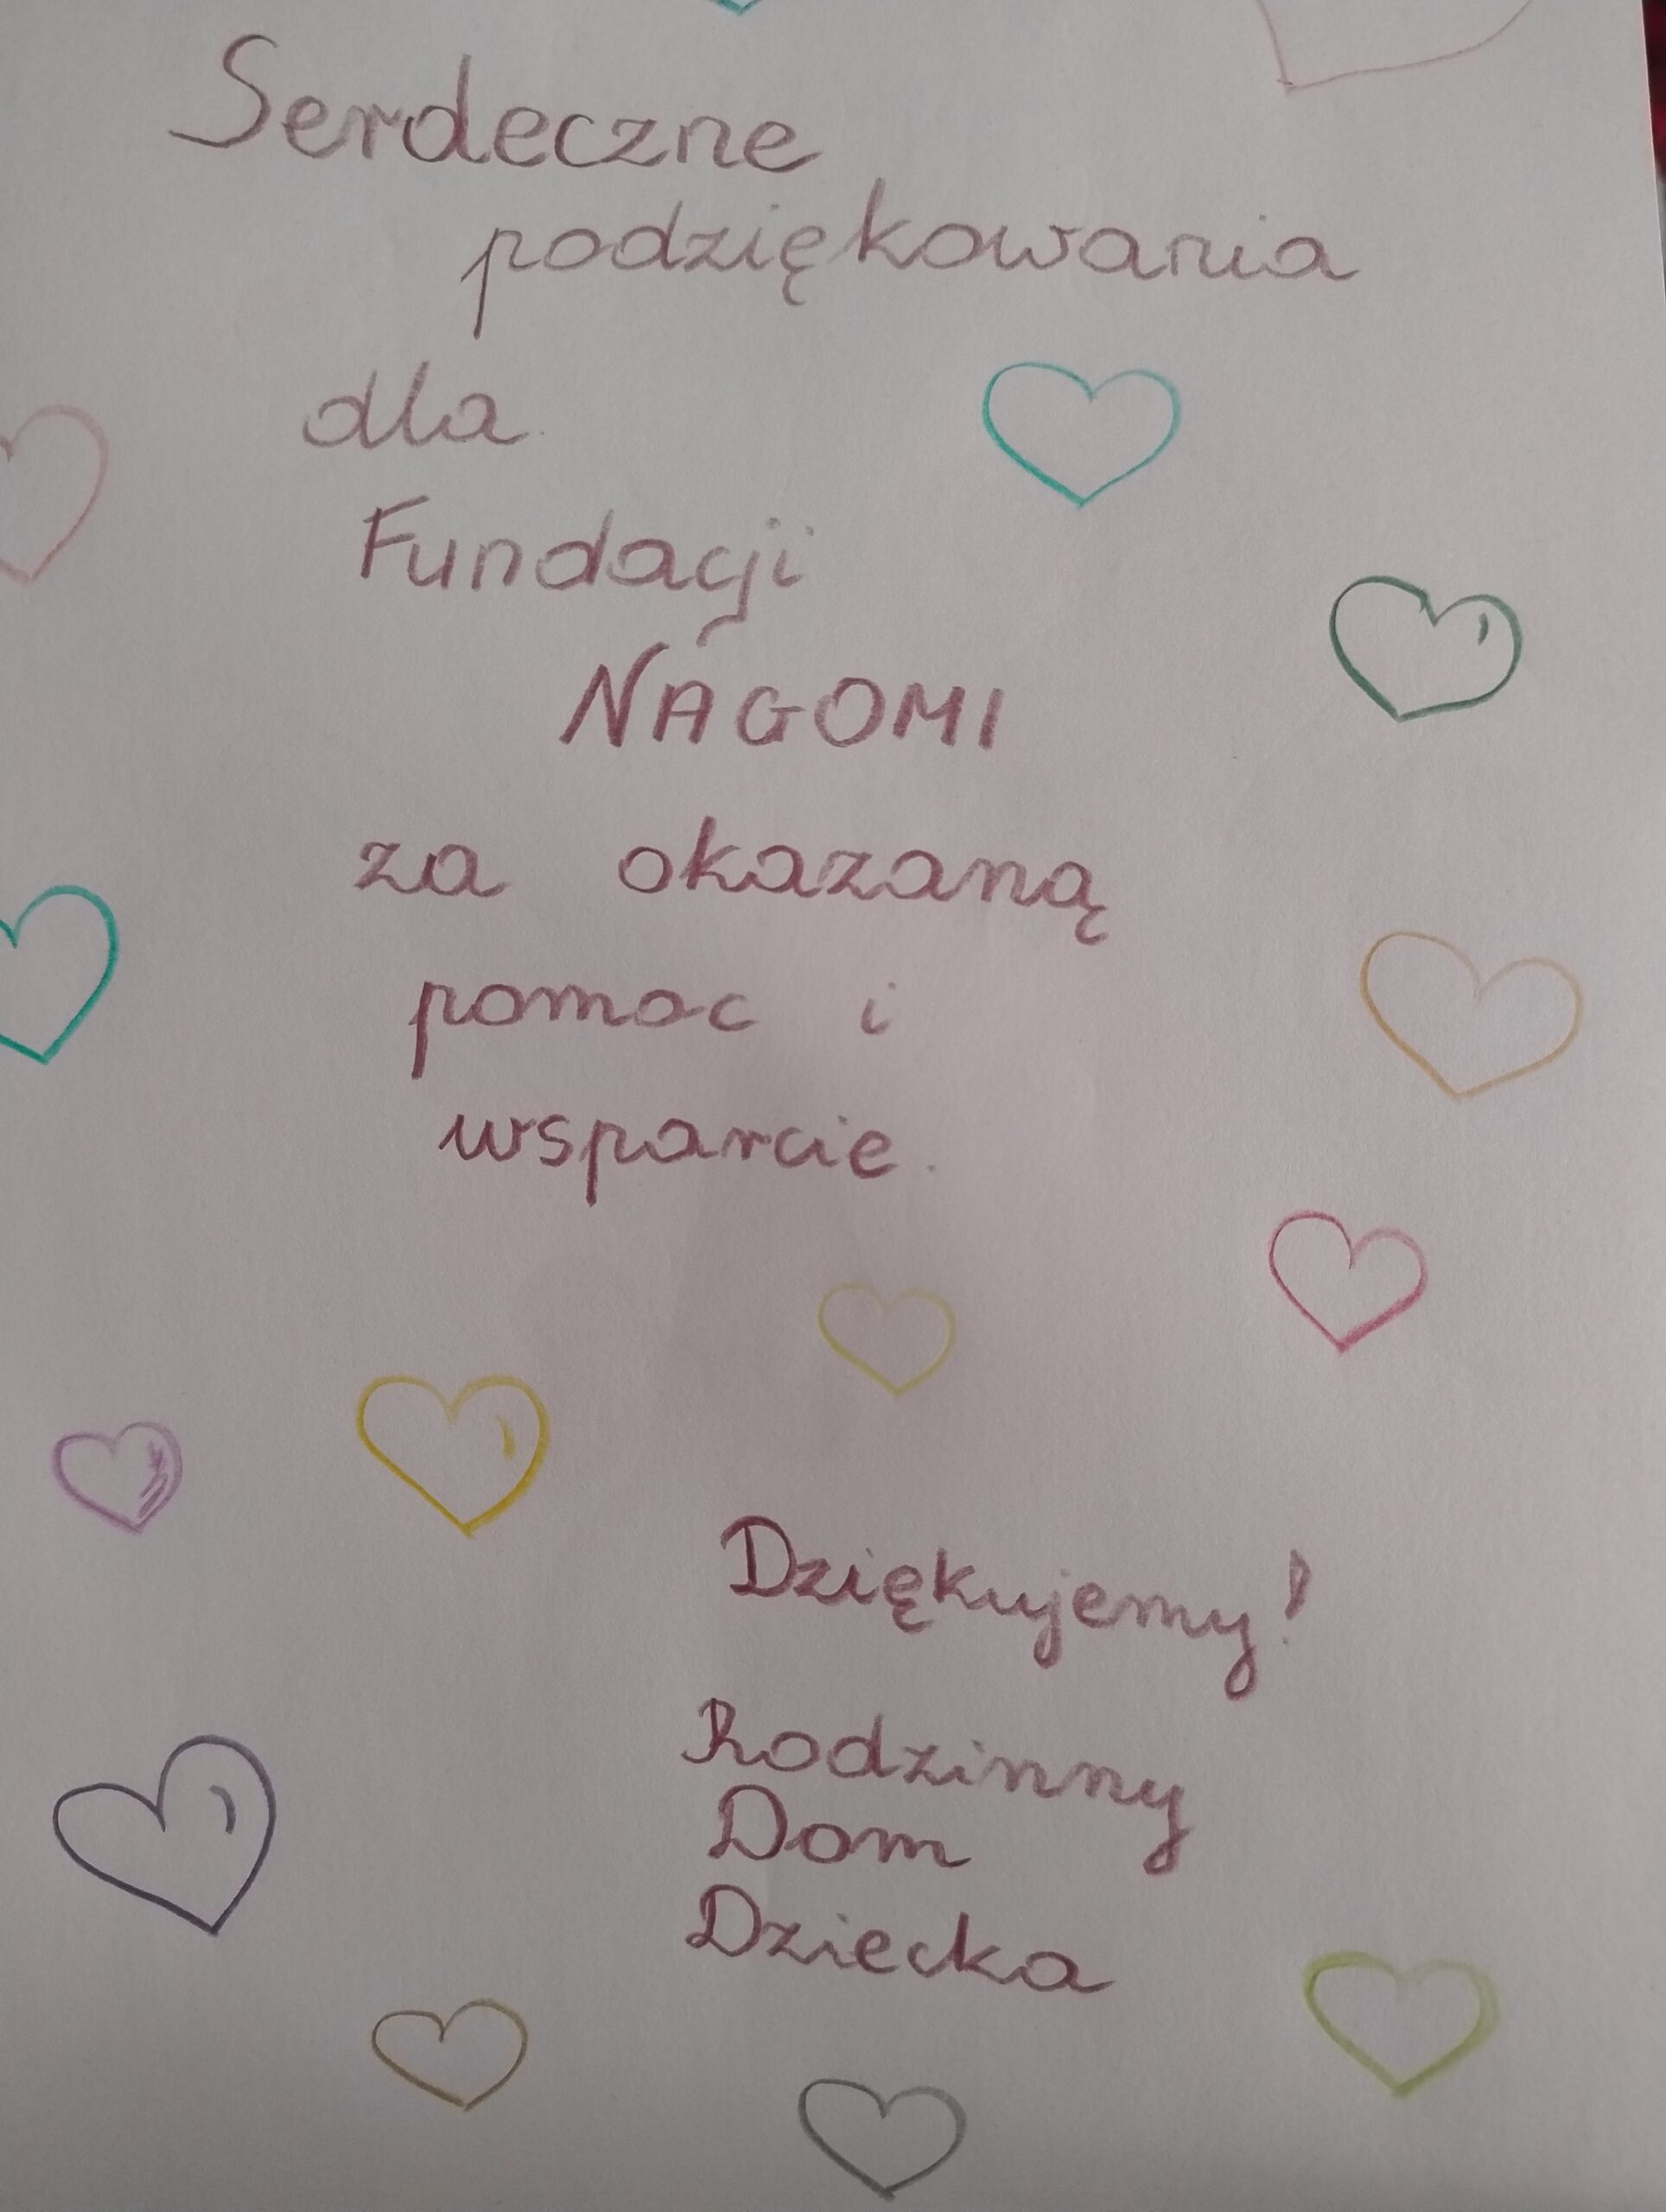 Serdeczne
podziękowania
dla
Fundacji
NAGOMI
za okazaną
pomoc i
wsparcie.
Dziękujemy!
Rodzinny
Dom
Dziecka